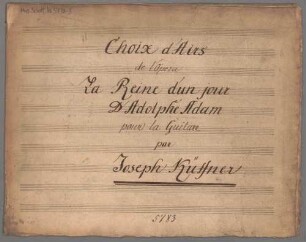 Choix d'Airs
de l'Opera
La Reine d'un jour
D'Adolphe Adam
pour la Guitare
par
Joseph Küffner
5783